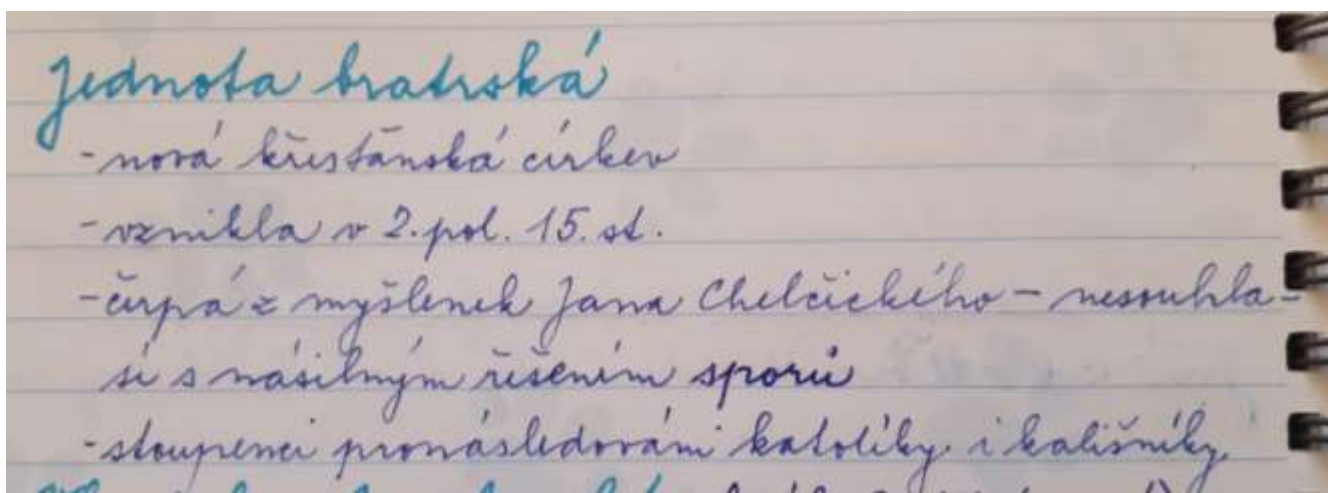 Jednota bratrská
- nová křesťanská církev
- vznikla v 2. pol. 15. st.
- čerpá z myšlenek Jana Chelčického - nesouhla-
sí s násilným řešením sporů
- stoupenci pronásledováni katolíky i kališníky